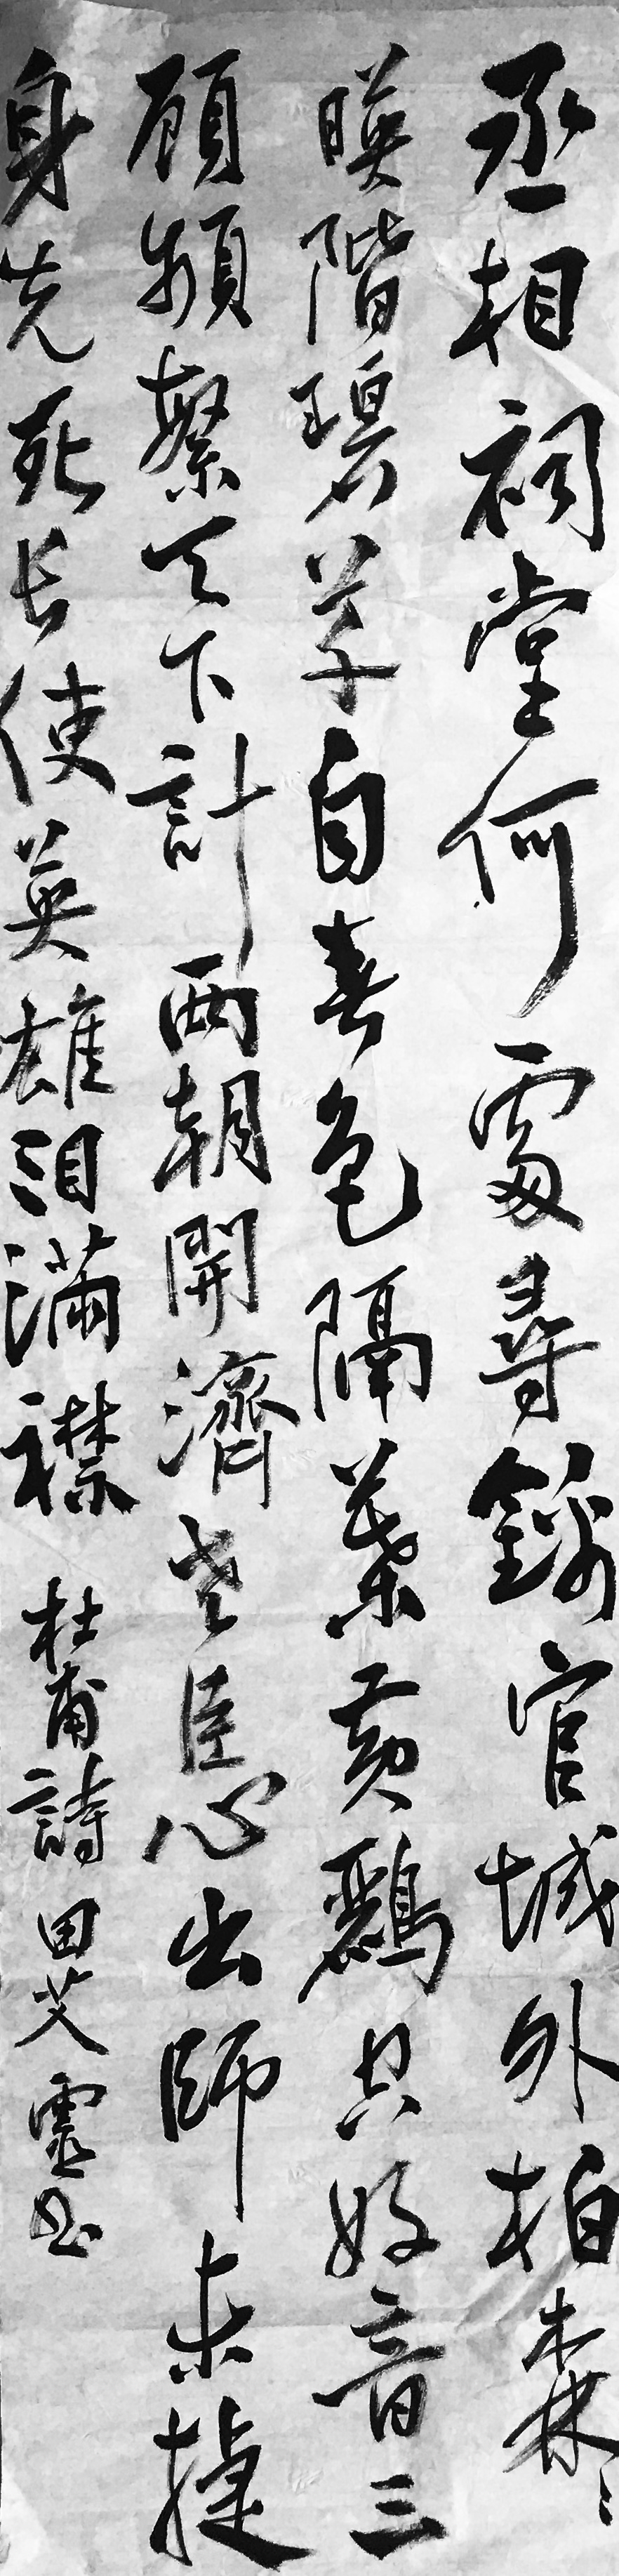 丞相祠堂何處尋錦官城外柏森〻
暎階碧草自春色隔葉黃鸝空好音三
顧頻繁天下計兩朝開濟老臣心出師未捷
身先死長使英雄淚滿襟 杜甫詩 田艾靈書